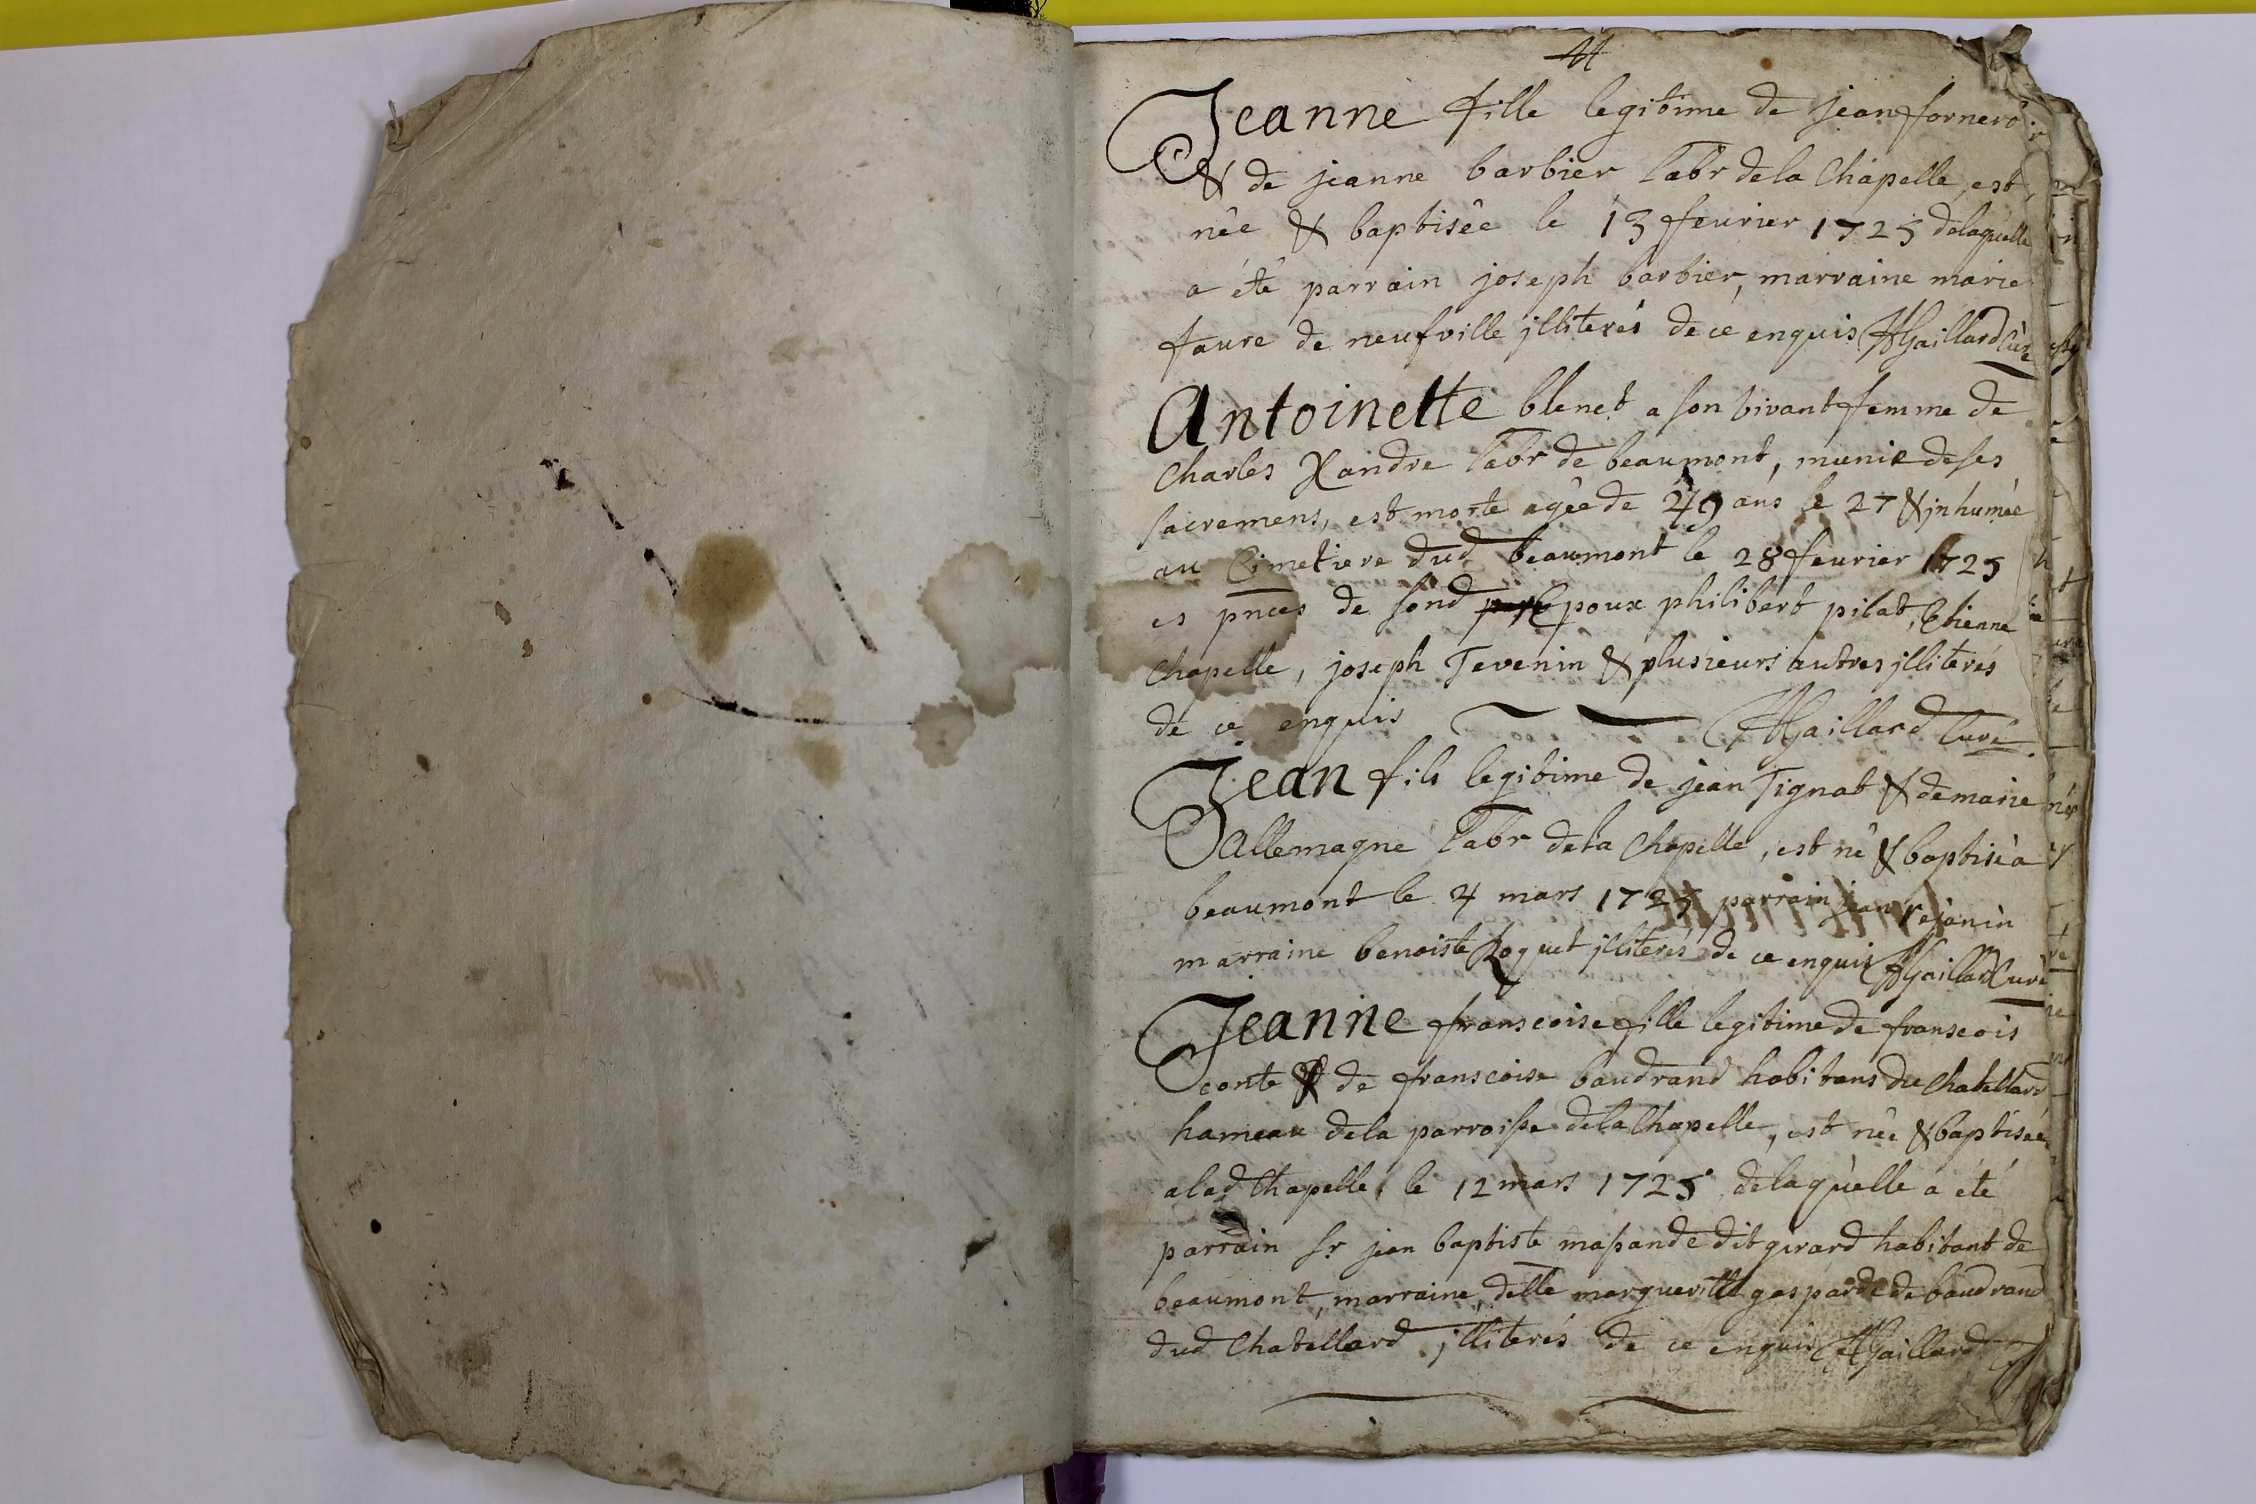 Jeanne fille legitime de jean fornero
& de jeanne barbier labr de la Chapelle, est
née & baptisée le 13 feurier 1725 delaquelle
a été parrain joseph barbier, marraine marie
faure de neufville jlliterés de ce enquis Gaillard Curé
Antoinette blenet a son vivant femme de
Charles Xandre labr de beaumont, munie de ses
sacremens, est morte agée de 49 ans le 27 & jnhumée
au Cimetiere dud beaumont le 28 feurier 1725
es pnces de sond Epoux philibert pilat, Etienne
Chapelle, joseph Tevenin & plusieurs autres jlliterés
de ce enquis Gaillard Curé
Jean fils legitime de jean Tignat & de marie
allemagne labr dela Chapelle, est né & baptisé a
beaumont le 4 mars 1725 parrain jean rejanin
marraine benoiste Roguet jlliterés de ce enquis Gaillard Curé
Jeanne franscoise fille legitime de franscois
conte & de franscoise baudrand habitans du Chatellard
hameau dela parroisse dela Chapelle, est née & baptisée
a lad Chapelle le 12 mars 1725 delaquelle a été
parrain sr jean baptiste massande dit girard habitant de
beaumont, marraine delle margueritte gasparde de baudrand
dud Chatellard jlliterés de ce enquis Gaillard